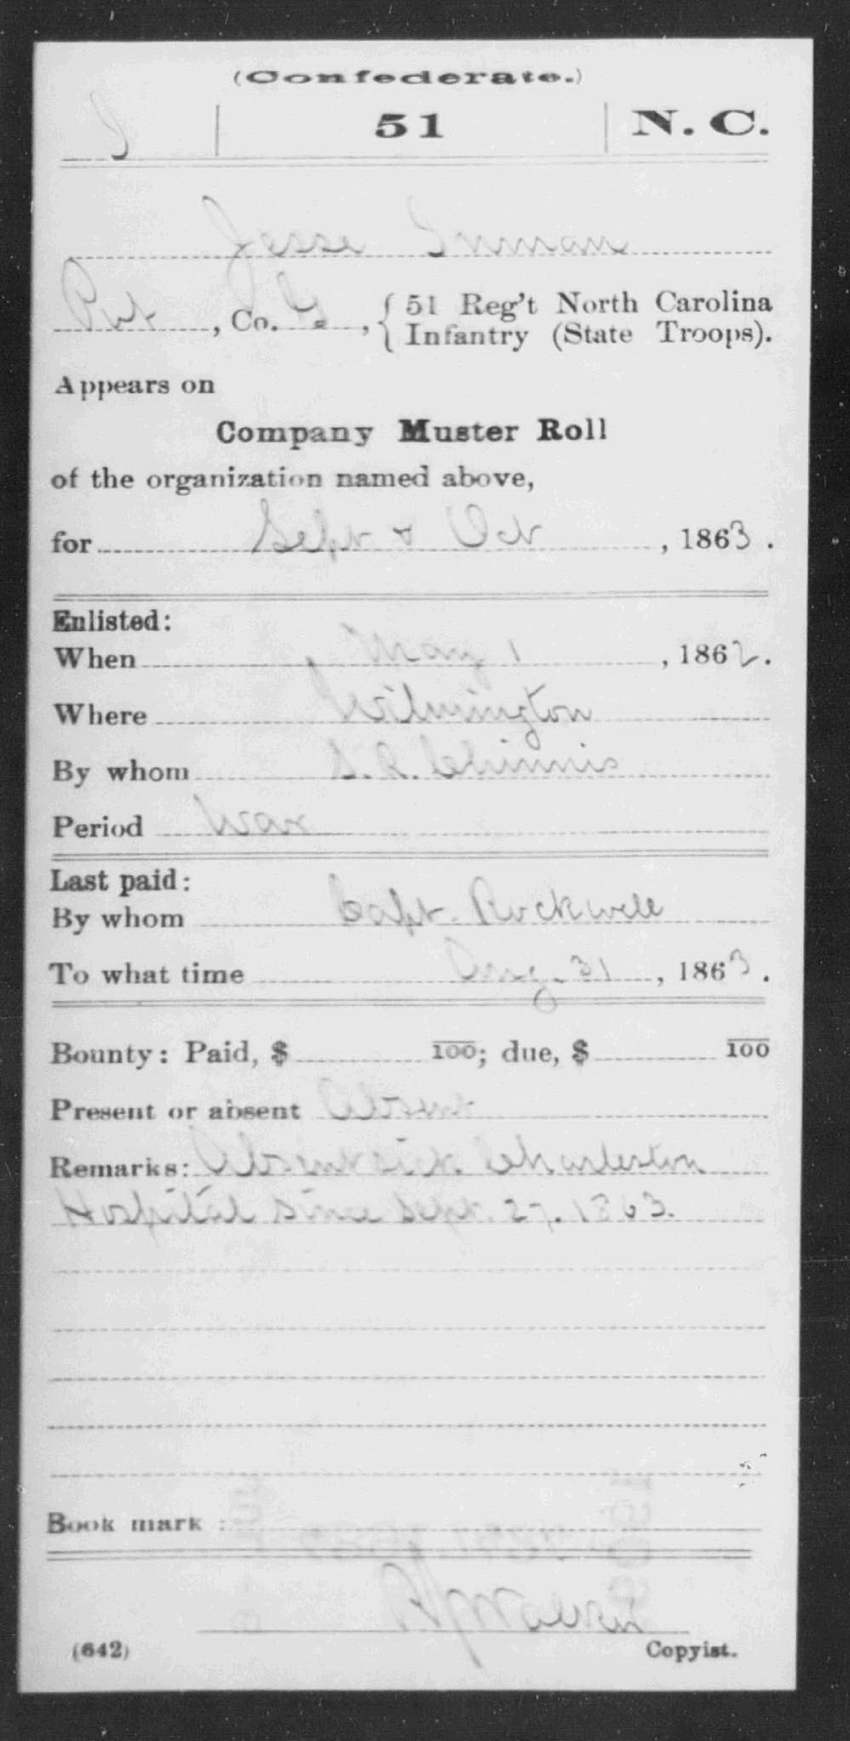 (Confederate.)
I | 51 | N. C.
Jesse Inman
Pvt, Co. G, { 51 Reg't North Carolina
Infantry (State Troops).
Appears on
Company Muster Roll
of the organization named above,
for Sept & Oct, 1863.
Enlisted:
When May 1, 1862.
Where Wilmington
By whom S. R. Chinnis
Period War
Last paid:
By whom Capt. Rockwell
To what time Aug. 31, 1863.
Bounty: Paid, $ 100; due, $ 100
Present or absent Absent
Remarks: Absent sick Charleston
Hospital since Sept. 27. 1863.
Book mark :
(642)
Copyist.